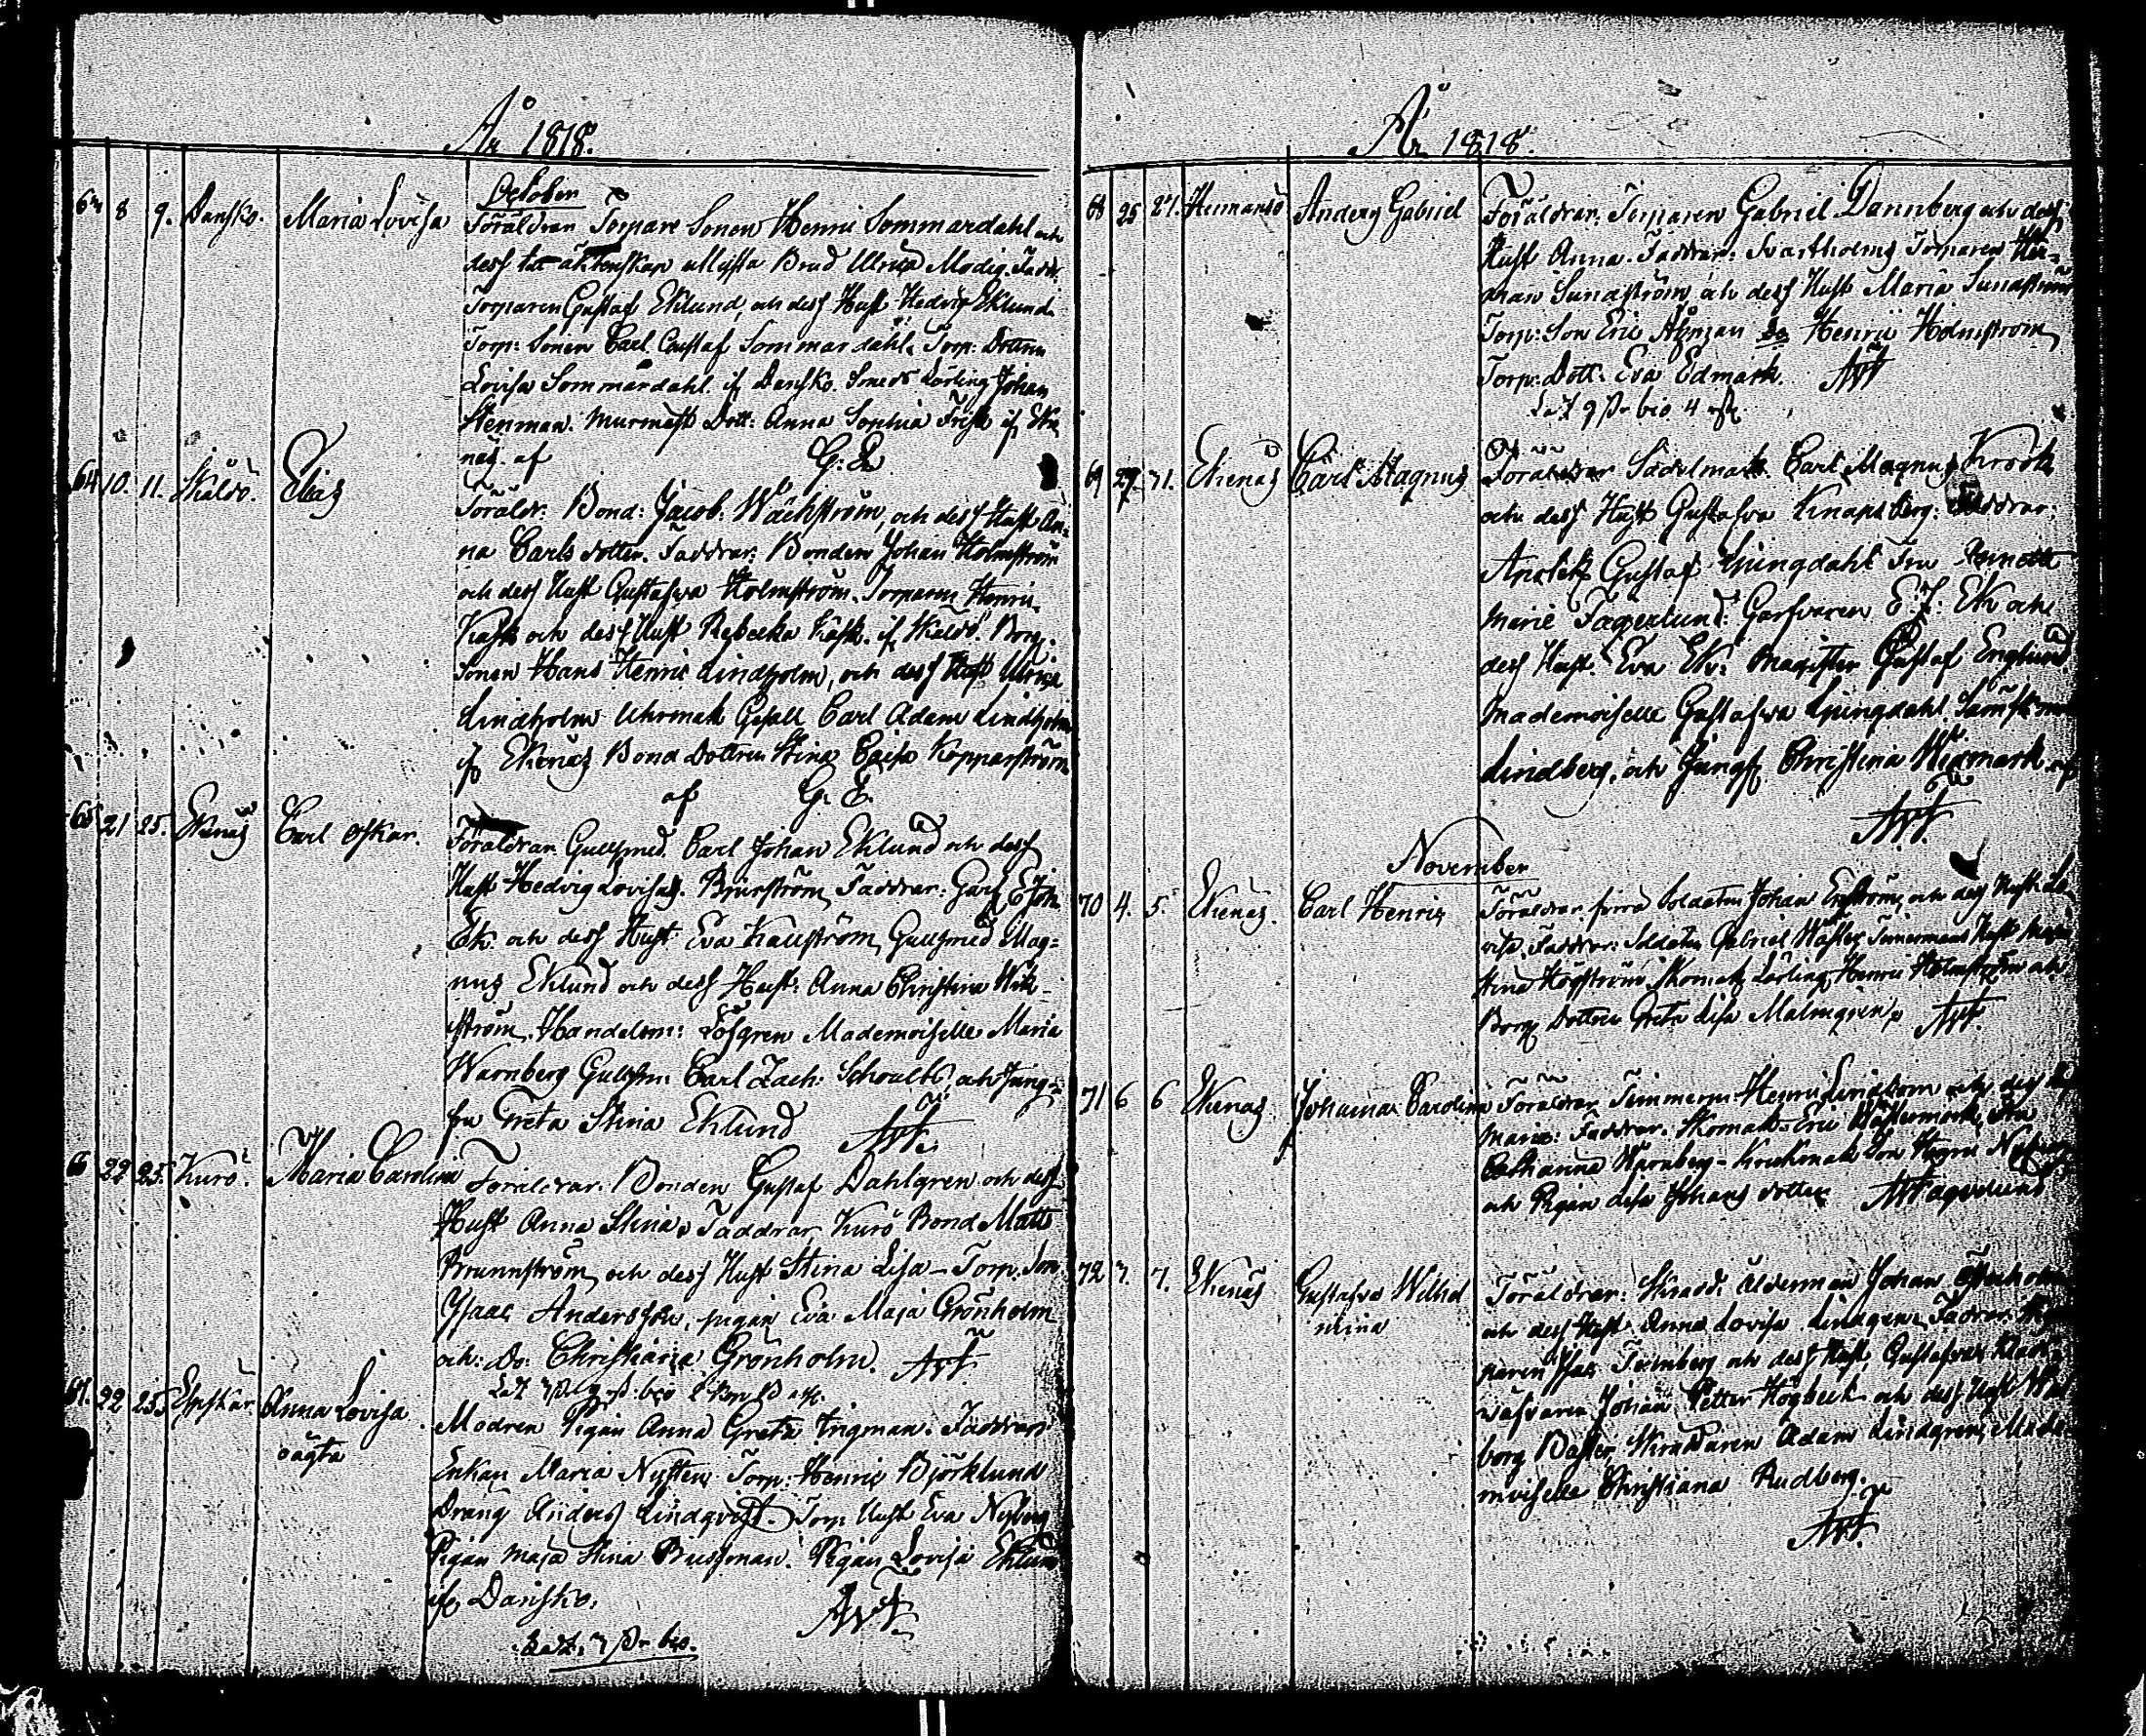 År 1818.
October
63 8 9. Danskö. Maria Lovisa Föräldrar Torpare Sonen Henric Sommardahl och
dess äktenskap utlysta Brud Ulrica Modig. Faddr.
Torparen Gustaf Eklund, och dess Hust Hedvig Eklund.
Torp: Sonen Carl Gustaf Sommardahl. Torp: Dottren
Lovisa Sommardahl. if Danskö. Smeds Lärling Johan
Stenman. Murmäst Dott: Anna Sophia Frisk if Eke
näs. af G: E.
64 10. 11. Skåldö. Elias
Föräldr: Bond: Jacob. Wäckström, och dess Hust An-
na Carls dotter. Faddrar: Bonden Johan Holmström
och dess Hust Gustafva Holmström. Torparen Henric
Kask och dess Hust Rebecka Kask. if Skåldö. Borg.
Sonen Hans Henric Lindholm, och dess Hust Ulrica
Lindholm Uhrmak Gesall Carl Adam Lindholm
if Ekenäs Bond Dottren Stina Caisa Kopparström
af G. E.
65 21 25. Ekenäs Carl Oskar. Föräldrar. Gullsmed. Carl Johan Eklund och dess
Hust Hedvig Lovisa Björström, Faddrar: Garf. E. Joh.
Ek. och dess Hust. Eva Kallström, Gullsmed Mag-
nus Eklund och dess Hust: Anna Christina Wik-
ström, Handelsm: Löfgren Mademoiselle Maria
Warnberg Gullsm: Carl Zach: Schoultz, och Jung-
fru Greta Stina Eklund
66 22 25. Kurö. Maria Carolina Föräldrar. Bonden Gustaf Dahlgren och dess
Hust Anna Stina. Faddrar, Kurö Bond Matts
Brunnström, och dess Hust Stina Lisa - Torp. Son
Isaac Andersson, pigan Eva Maja Grönholm
och: Do: Christiana Grönholm.
67. 22 25. Elgskär. Anna Lovisa
oägta
Modren Pigan Anna Greta Tigman. Faddrar.
Enkan Maria Nysten Torp. Henric Björklund
Dräng Anders Lindqvist. Torp. Hust Eva Nyberg
Pigan Maja Stina Bussman. Pigan Lovisa Eklund
if Danskö.
År 1818.
68 25 27. Hermansö Anders Gabriel Föräldrar: Torparen Gabriel Dannberg och dess
Hust Anna. Faddrar: Svartholms Torparen Her-
man Sundström, och dess Hust Maria Sundström
Torp: Son Eric Åhman Do Henric Holmström,
Torp: Dott: Eva Edmark.
69 27. 31. Ekenäs Carl Magnus Föräldrar Sadelmak. Carl Magnus Krook
och dess Hust Gustafva Knapsberg: Faddrar.
Apotek Gustaf Ljungdahl Fru
Marie Fagerlund: Garfvaren E: J: Ek och
dess Hust. Eva Ek: Magister Gustaf Englund.
Mademoiselle Gustafva Ljungdahl
Lindberg, och Jungf. Christina Wixmark
November
70 4. 5. Ekenäs. Carl Henric Föräldrar förra Soldaten Johan Enström, och dess Hust Lo-
visa. Faddrar: Soldaten Gabriel Timermans Hust Maja
Stina Högström, Skomak. Lärling Henric Holmström och
Borg. Dottren Greta Lisa Malmgren.
71 6 6 Ekenäs. Johanna Carolina Föräldrar Timmerm: Henric Lindbom och dess
Maria: Faddrar. Skomak. Eric Westermark,
Catharina Warnberg - Krukmak Son Henric
och Pigan Lisa Johans dotter Fagerlund
72 7. 7. Ekenäs Gustafva Wilhel
mina
Föräldrar: Skradd. Ålderman Johan
och dess Hust Anna Lovisa Lindgren, Faddrar.
Isac och dess Hust, Gustafva
Johan Petter Högbeck och dess Hust Wal
borg Skraddaren Adam Lindgren, Made
moiselle Christiana Rudberg.